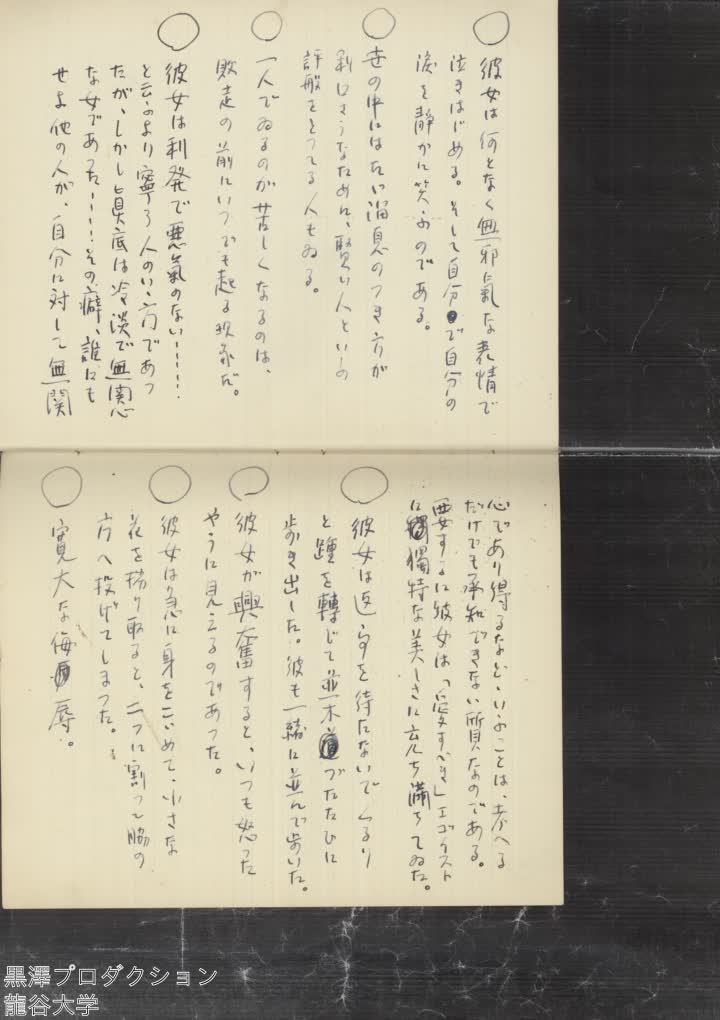 ○ 彼女は何となく無邪氣な表情で
泣きはじめる。そして自分で自分の
涙を静かに笑ふのである。
○ 世の中にはたゞ溜息のつき方が
利口さうなために、賢い人といふの
評般をとつてる人もゐる。
○ 一人でゐるのが苦しくなるのは、
敗走の前にいつでも起る現象だ。
○ 彼女は利発で悪氣のない……
と云ふより寧ろ人のいゝ方であつ
たが、しかし眞底は冷淡で無関心
な女であつた……その癖、誰にも
せよ他の人が、自分に対して無関
心であり得るなどゝいふことは、考へる
だけでも承知できない質なのである。
要するに彼女は「愛すべき」エゴイスト
に獨特な美しさに充ち満ちてゐた。
○ 彼女は返事を待たないでくるり
と踵を轉じて並木づたひに
歩き出した。彼も一緒に並んで歩いた。
○ 彼女が興奮すると、いつも怒つた
やうに見えるのであつた。
○ 彼女は急に身をこゞめて、小さな
花を捥り取ると、二つに割つて脇の
方へ投げてしまつた。
○ 寛大な侮辱。
黒澤プロダクション
龍谷大学